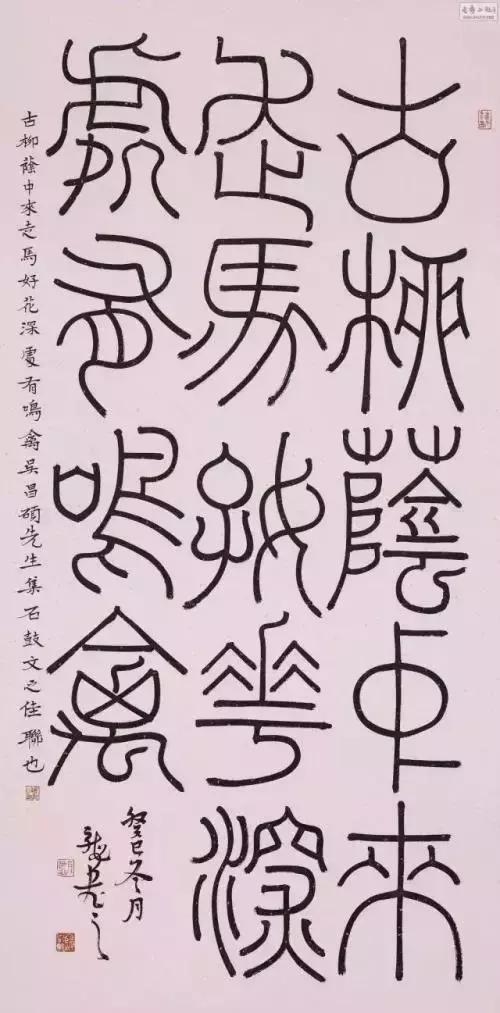 古柳蔭中來
走馬好花深
處有鳴禽
癸巳冬月
古柳蔭中來走馬好花深處有鳴禽吳昌碩先生集石鼓文之佳聯也